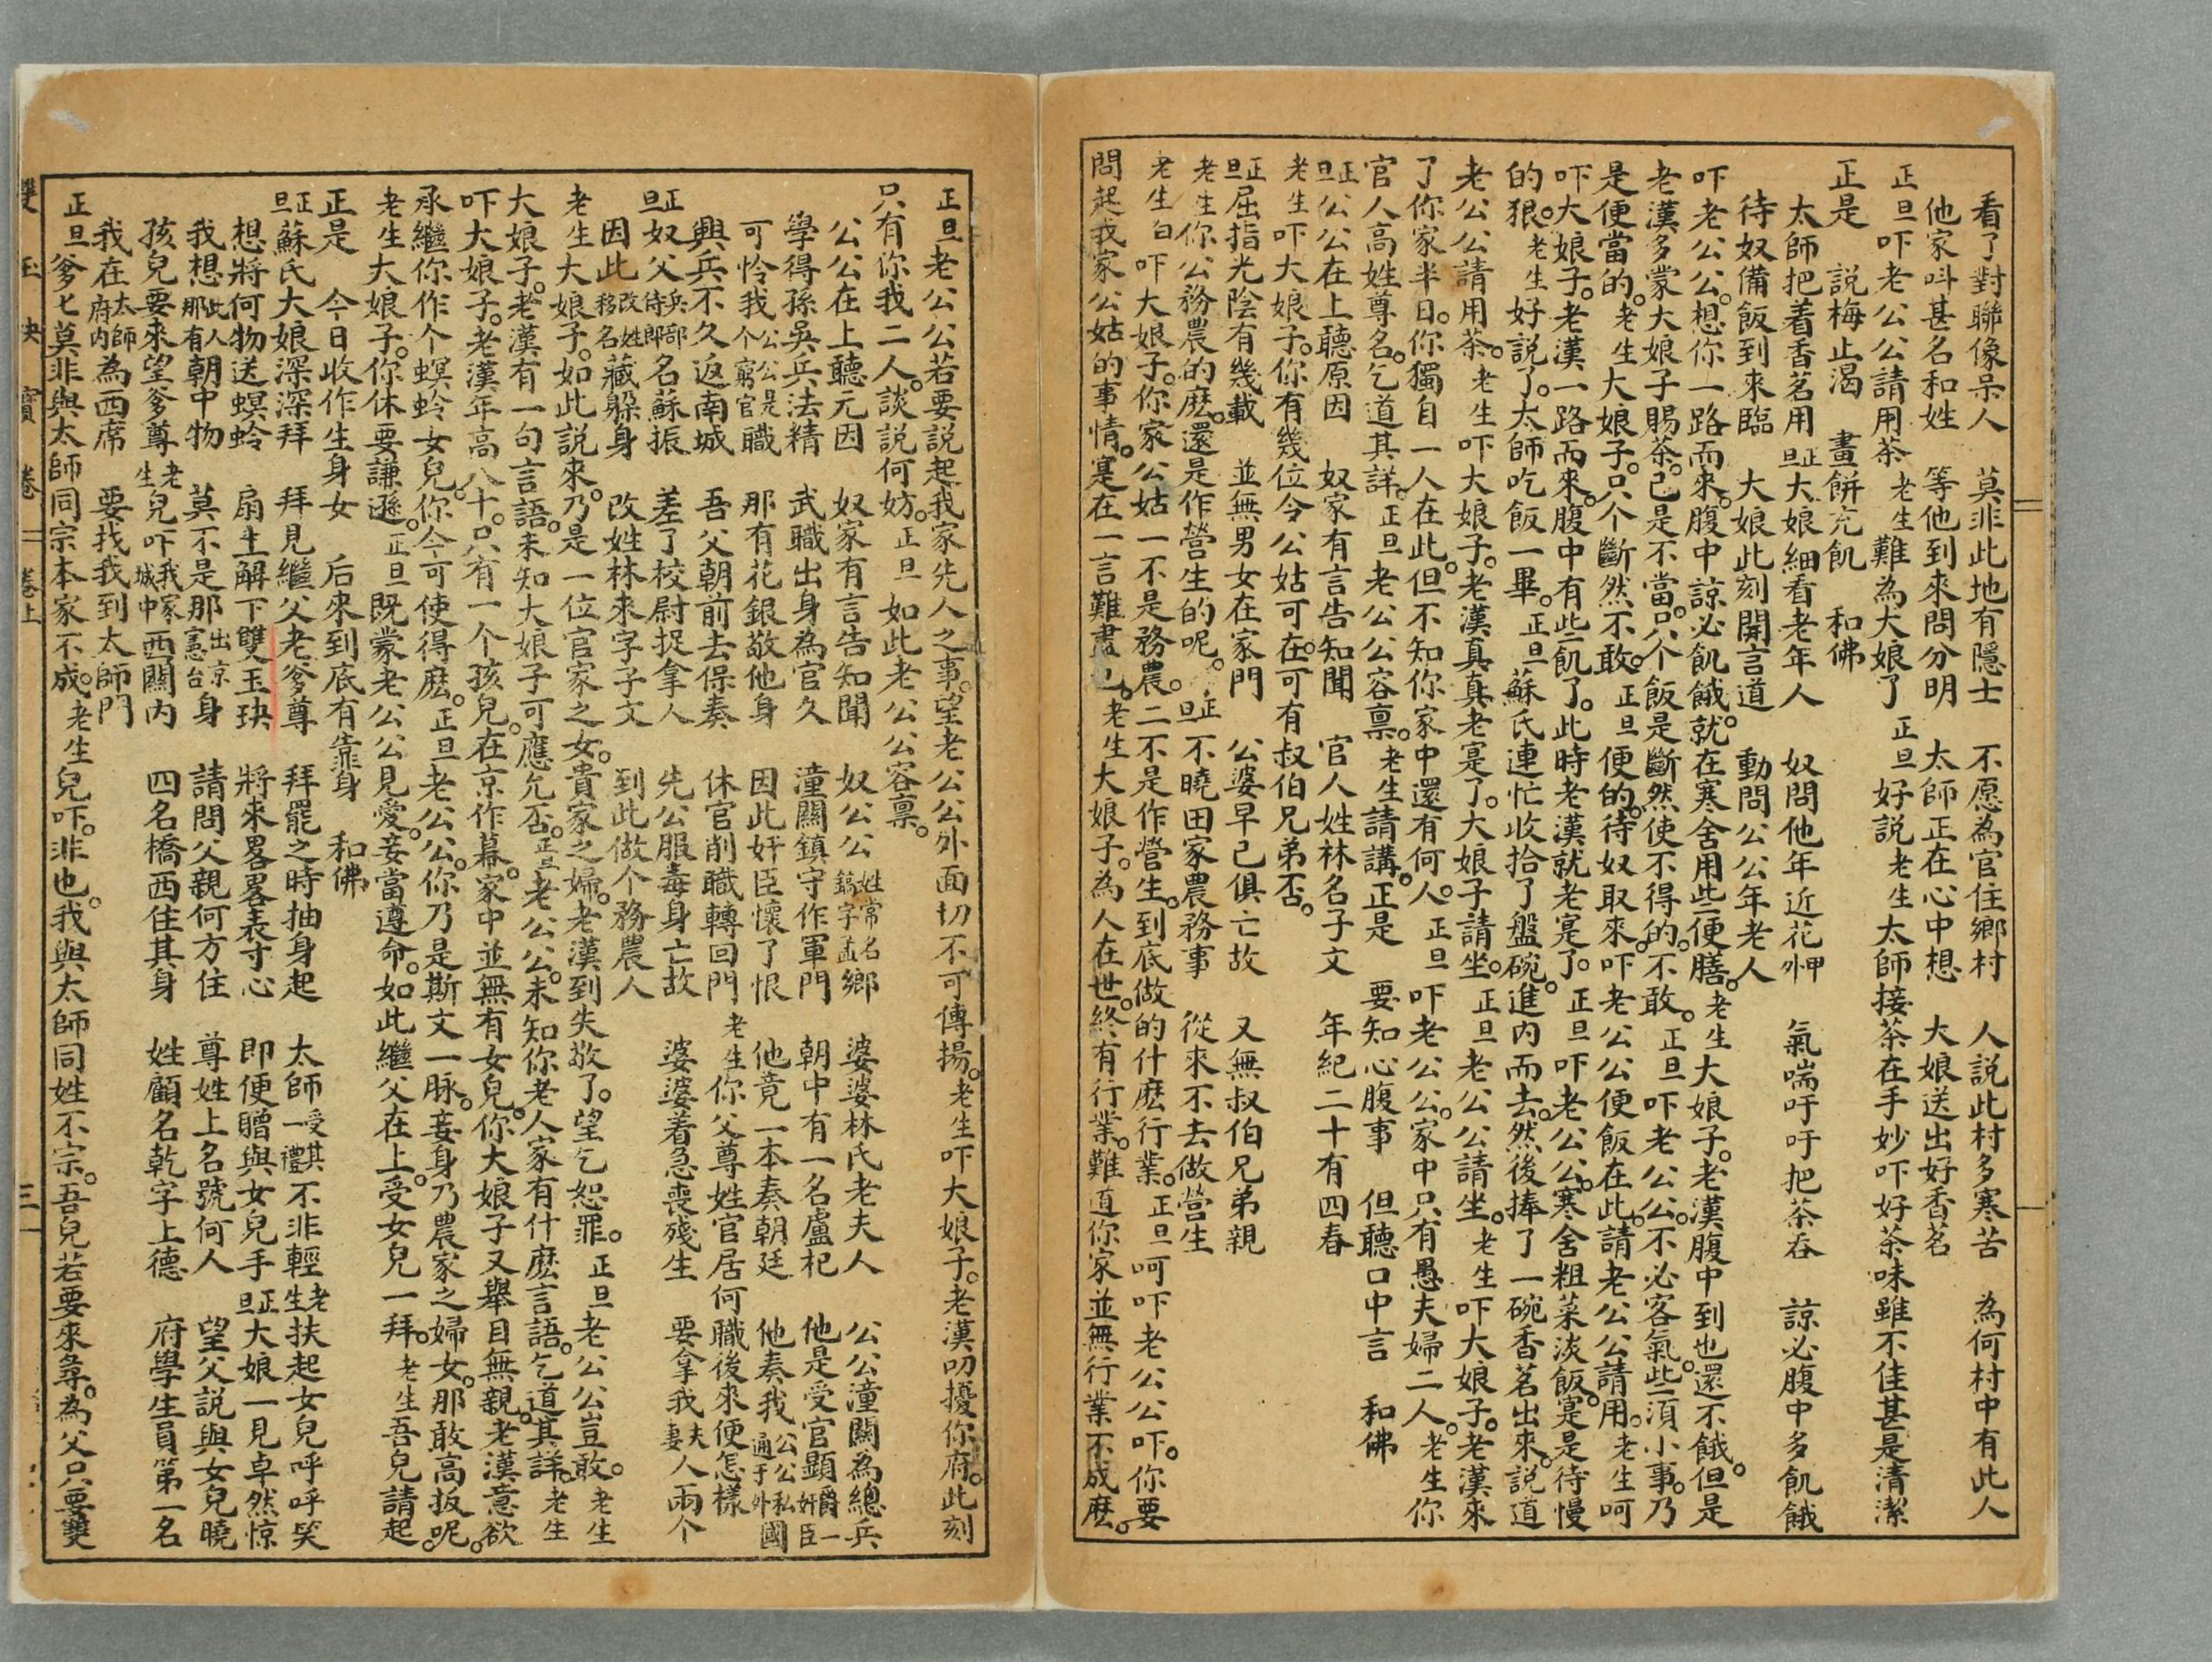 看了對聯像呆人　莫非此地有隱士　不愿為官住鄉村　人説此村多寒苦　為何村中有此人
他家呌甚名和姓　等他到來問分明　太師正在心中想　大娘送出好香茗
正旦吓老公公請用茶老生難為大娘了正旦好説老生太師接茶在手妙吓好茶味雖不佳甚是清潔
正是　説梅止渴　畫餅充飢　和佛
太師把着香茗用正旦大娘細看老年人　奴問他年近花甲　氣喘吁吁把茶吞　諒必腹中多飢餓
待奴備飯到來臨　大娘此刻開言道　動問公公年老人
吓老公公。想你一路而來。腹中諒必飢餓。就在寒舍用些便膳。老生大娘子。老漢腹中到也還不餓。但是
老漢多蒙大娘子賜茶。已是不當。只个飯是斷然使不得的。不敢。正旦吓老公公。不必客氣。些須小事。乃
是便當的。老生大娘子。只个斷然不敢。正旦便的。待奴取來。吓老公公便飯在此。請老公公請用。老生呵
吓大娘子。老漢一路而來。腹中有些飢了。此時老漢就老寔了。正旦吓老公公。寒舍粗菜淡飯。寔是待慢
的狠。老生好説了。太師吃飯一畢。正旦蘇氏連忙收拾了盤碗。進内而去。然後捧了一碗香茗出來。説道
老公公請用茶。老生吓大娘子。老漢真真老寔了。大娘子請坐。正旦老公公請坐。老生吓大娘子。老漢來
了你家半日。你獨自一人在此。但不知你家中還有何人。正旦吓老公公。家中只有愚夫婦二人。老生你
官人高姓尊名。乞道其詳。正旦老公公容禀。老生請講。正是　要知心腹事　但聽口中言　和佛
正旦公公在上聽原因　奴家有言告知聞　官人姓林名子文　年紀二十有四春
老生吓大娘子。你有幾位令公姑可在。可有叔伯兄弟否。
正旦屈指光陰有幾載　並無男女在家門　公婆早已俱亡故　又無叔伯兄弟親
老生你公務農的麽。還是作營生的呢。正旦不曉田家農務事　從來不去做營生
老生白吓大娘子。你家公姑一不是務農。二不是作營生。到底做的什麽行業。正旦呵吓老公公吓。你要
問起我家公姑的事情。寔在一言難盡也。老生大娘子。為人在世。終有行業。難道你家並無行業不成麽。
正旦老公公若要説起我家先人之事。望老公公外面切不可傳揚。老生吓大娘子。老漢叨擾你府。此刻
只有你我二人。談説何妨。正旦如此老公公容禀。
公公在上聽元因　奴家有言告知聞　奴公公姓常名鎬字孟鄉　婆婆林氏老夫人　公公潼關為總兵
學得孫吳兵法精　武職出身為官久　潼關鎮守作軍門　朝中有一名盧杞　他是受官顯爵一奸臣
可怜我公公是个窮官職　那有花銀敬他身　因此奸臣懷了恨　他竟一本奏朝廷　他奏我公公私通于外國
興兵不久返南城　吾父朝前去保奏　休官削職轉回門老生你父尊姓官居何職後來便怎樣
正旦奴父兵部侍郎名蘇振　差了校尉捉拿人　先公服毒身亡故　婆婆着急喪殘生　要拿我夫妻人兩个
因此改姓移名藏躲身　改姓林來字子文　到此做个務農人
老生大娘子。如此説來。乃是一位官家之女。貴家之婦。老漢到失敬了。望乞恕罪。正旦老公公豈敢。老生
大娘子。老漢有一句言語。未知大娘子可應允否。正旦老公公。未知你老人家有什麽言語。乞道其詳。老生
吓大娘子。老漢年高八十。只有一个孩兒。在京作幕。家中並無有女兒。你大娘子又舉目無親。老漢意欲
承繼你作个螟蛉女兒。你今可使得麽。正旦老公公。你乃是斯文一脉。妾身乃農家之婦女。那敢高扳呢。
老生大娘子。你休要謙遜。正旦既蒙老公公見愛。妾當遵命。如此繼父在上。受女兒一拜。老生吾兒請起。
正是　今日收作生身女　后來到底有靠身　和佛
正旦蘇氏大娘深深拜　拜見繼父老爹尊　拜罷之時抽身起　太師受其一禮不非輕老生扶起女兒呼呼笑
想將何物送螟蛉　扇生解下雙玉玦　將來畧畧表寸心　即便贈與女兒手正旦大娘一見卓然惊
我想此人那有朝中物　莫不是那出京憲台身　請問父親何方住　尊姓上名號何人　望父説與女兒曉
孩兒要來望爹尊老生兒吓我家城中西關内　四名橋西住其身　姓顧名乾字上德　府學生員第一名
我在太師府内為西席　要找我到太師門
正旦爹七莫非與太師同宗本家不成。老生兒吓。非也。我與太師同姓不宗。吾兒若要來尋。為父只要雙
雙玉玦寶卷　卷上　三